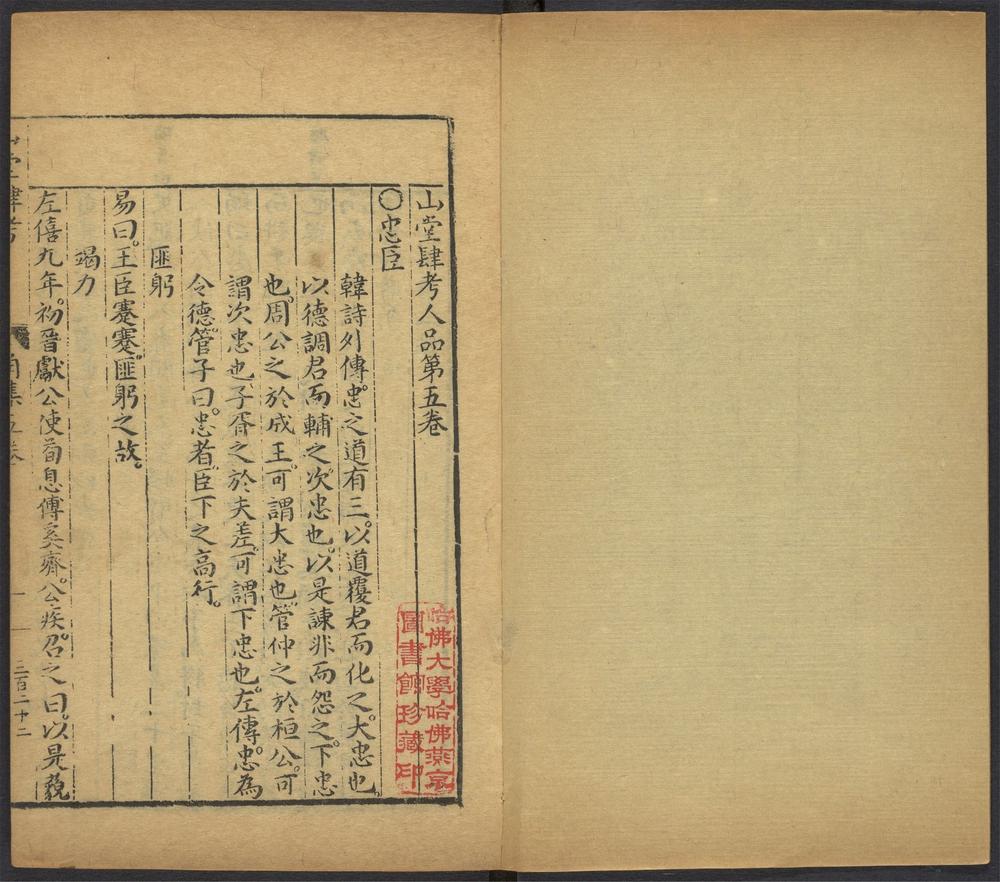 山堂肆考人品第五卷
○忠臣
韓詩外傳忠之道有三。以道覆君而化之。大忠也。
以德調君而輔之。次忠也。以是諫非而怨之。下忠
也。周公之於成王。可謂大忠也。管仲之於桓公。可
謂次忠也。子胥之於夫差。可謂下忠也。左傳。忠為
令德。管子曰。忠者臣下之高行。
匪躬
易曰。王臣蹇蹇。匪躬之故。
竭力
左僖九年。初晉獻公使荀息傅奚齊。公疾。召之曰。以是藐
三百二十二
哈佛大學哈佛燕京
圖書館珍藏印